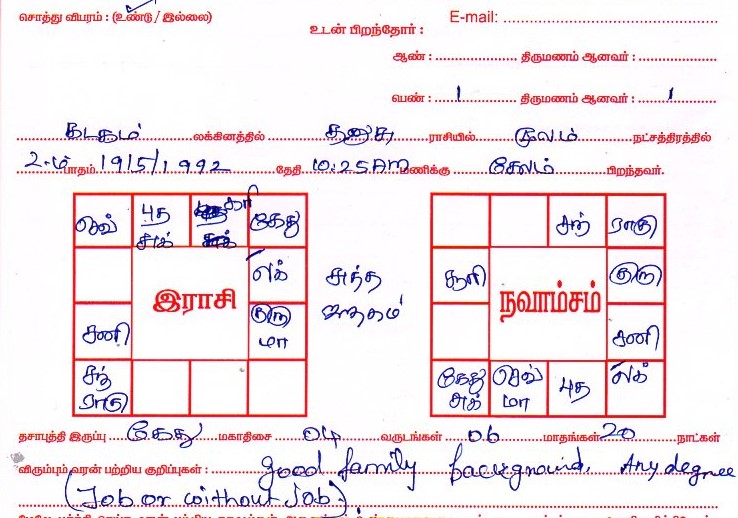 சொத்து விபரம் : (உண்டு / இல்லை) E-mail: ........................
உடன் பிறந்தோர் :
ஆண் : ............ திருமணம் ஆனவர் : ............
பெண் : 1 திருமணம் ஆனவர் : 1
கடகம் லக்கினத்தில் தனுசு ராசியில் மூலம் நட்சத்திரத்தில்
2-ம் பாதம் 19/5/1992 தேதி 10:25 AM மணிக்கு சேலம் பிறந்தவர்.
செவ் புத கேது சந் ராகு
சுக்
லக் சனி குரு
இராசி நவாம்சம்
சனி குரு சனி
மா
சந் கேது செவ் புத லக்
ராகு சுக் மா
தசாபுத்தி இருப்பு கேது மகாதிசை 04 வருடங்கள் 06 மாதங்கள் 20 நாட்கள்
விரும்பும் வரன் பற்றிய குறிப்புகள் : good family background, Any degree
(Job or without Job).